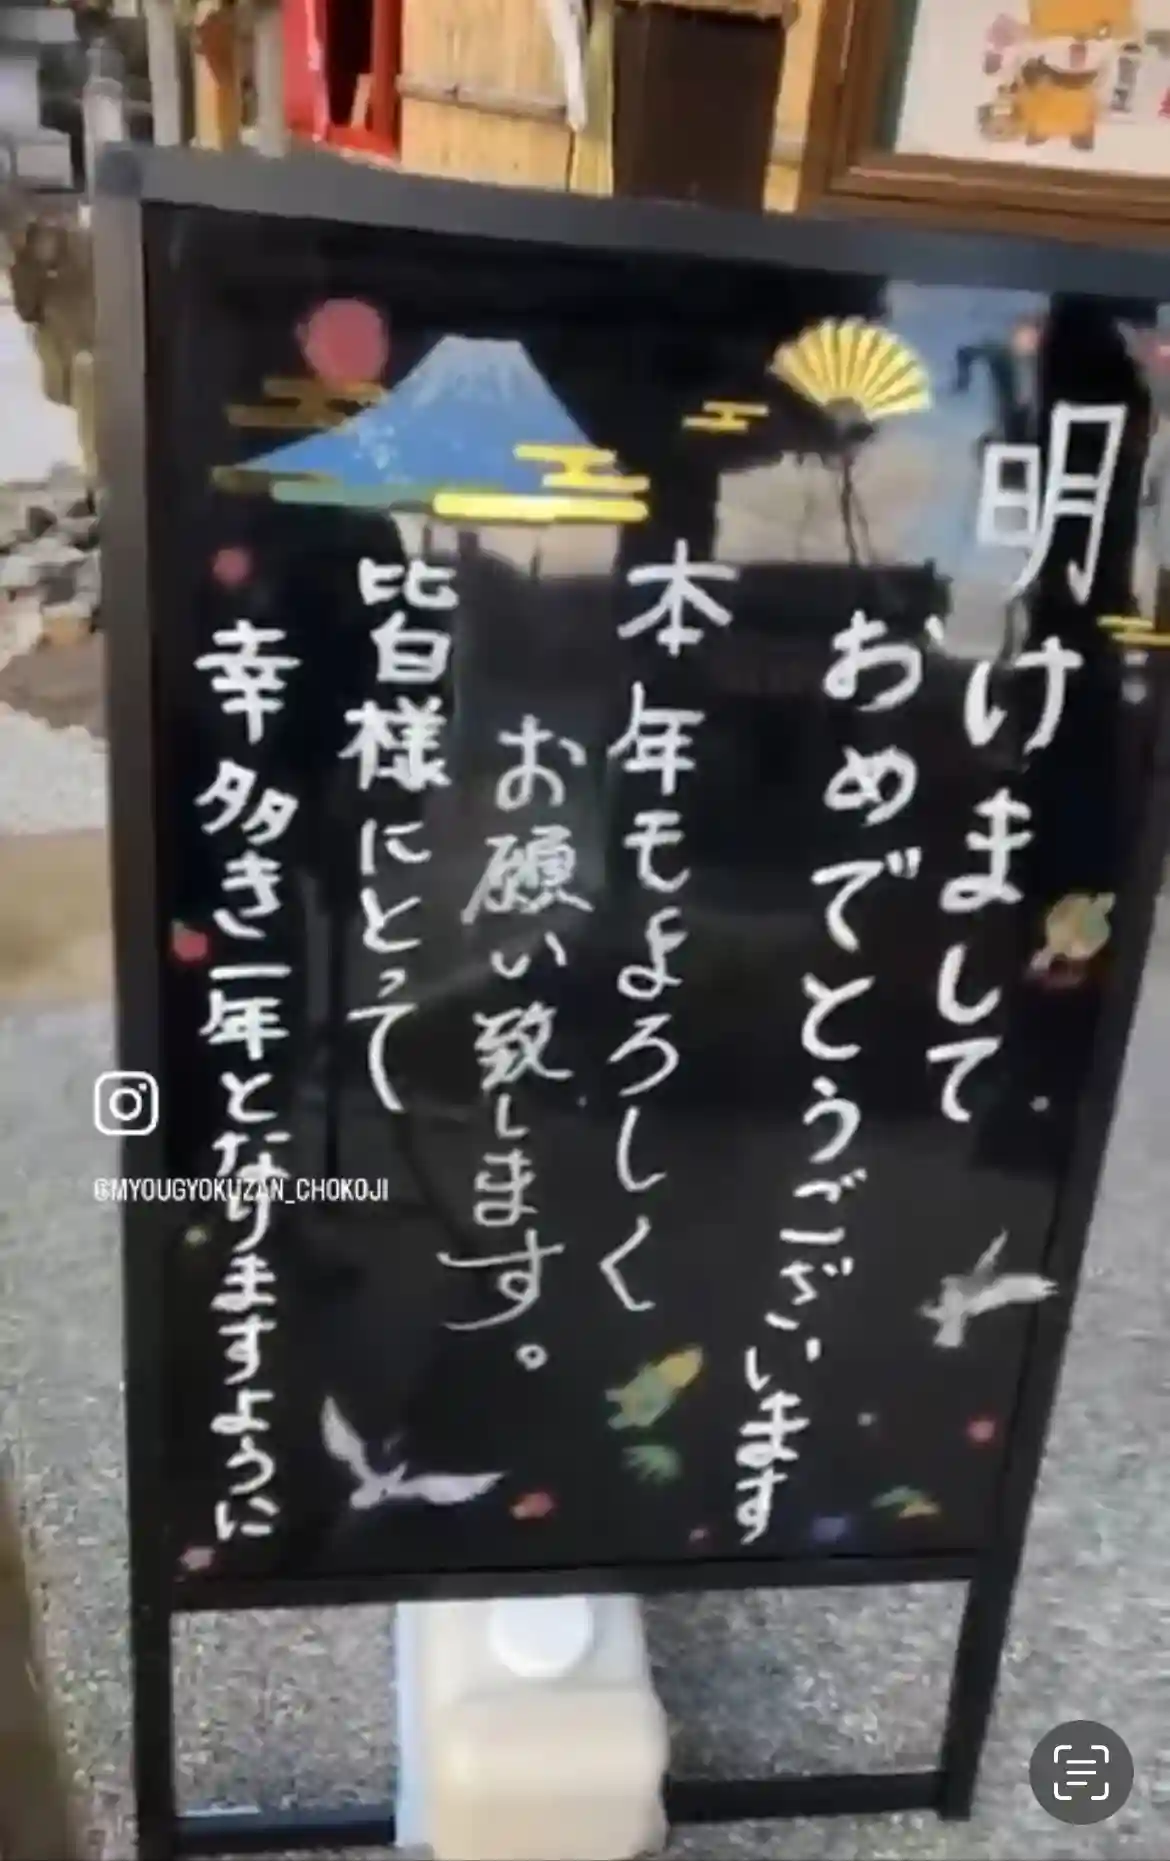 明けまして
おめでとうございます
本年モよろしく
お願い致します。
皆様にとって
幸多き一年となりますように
@MYOUGYOKUZAN_CHOKOJI